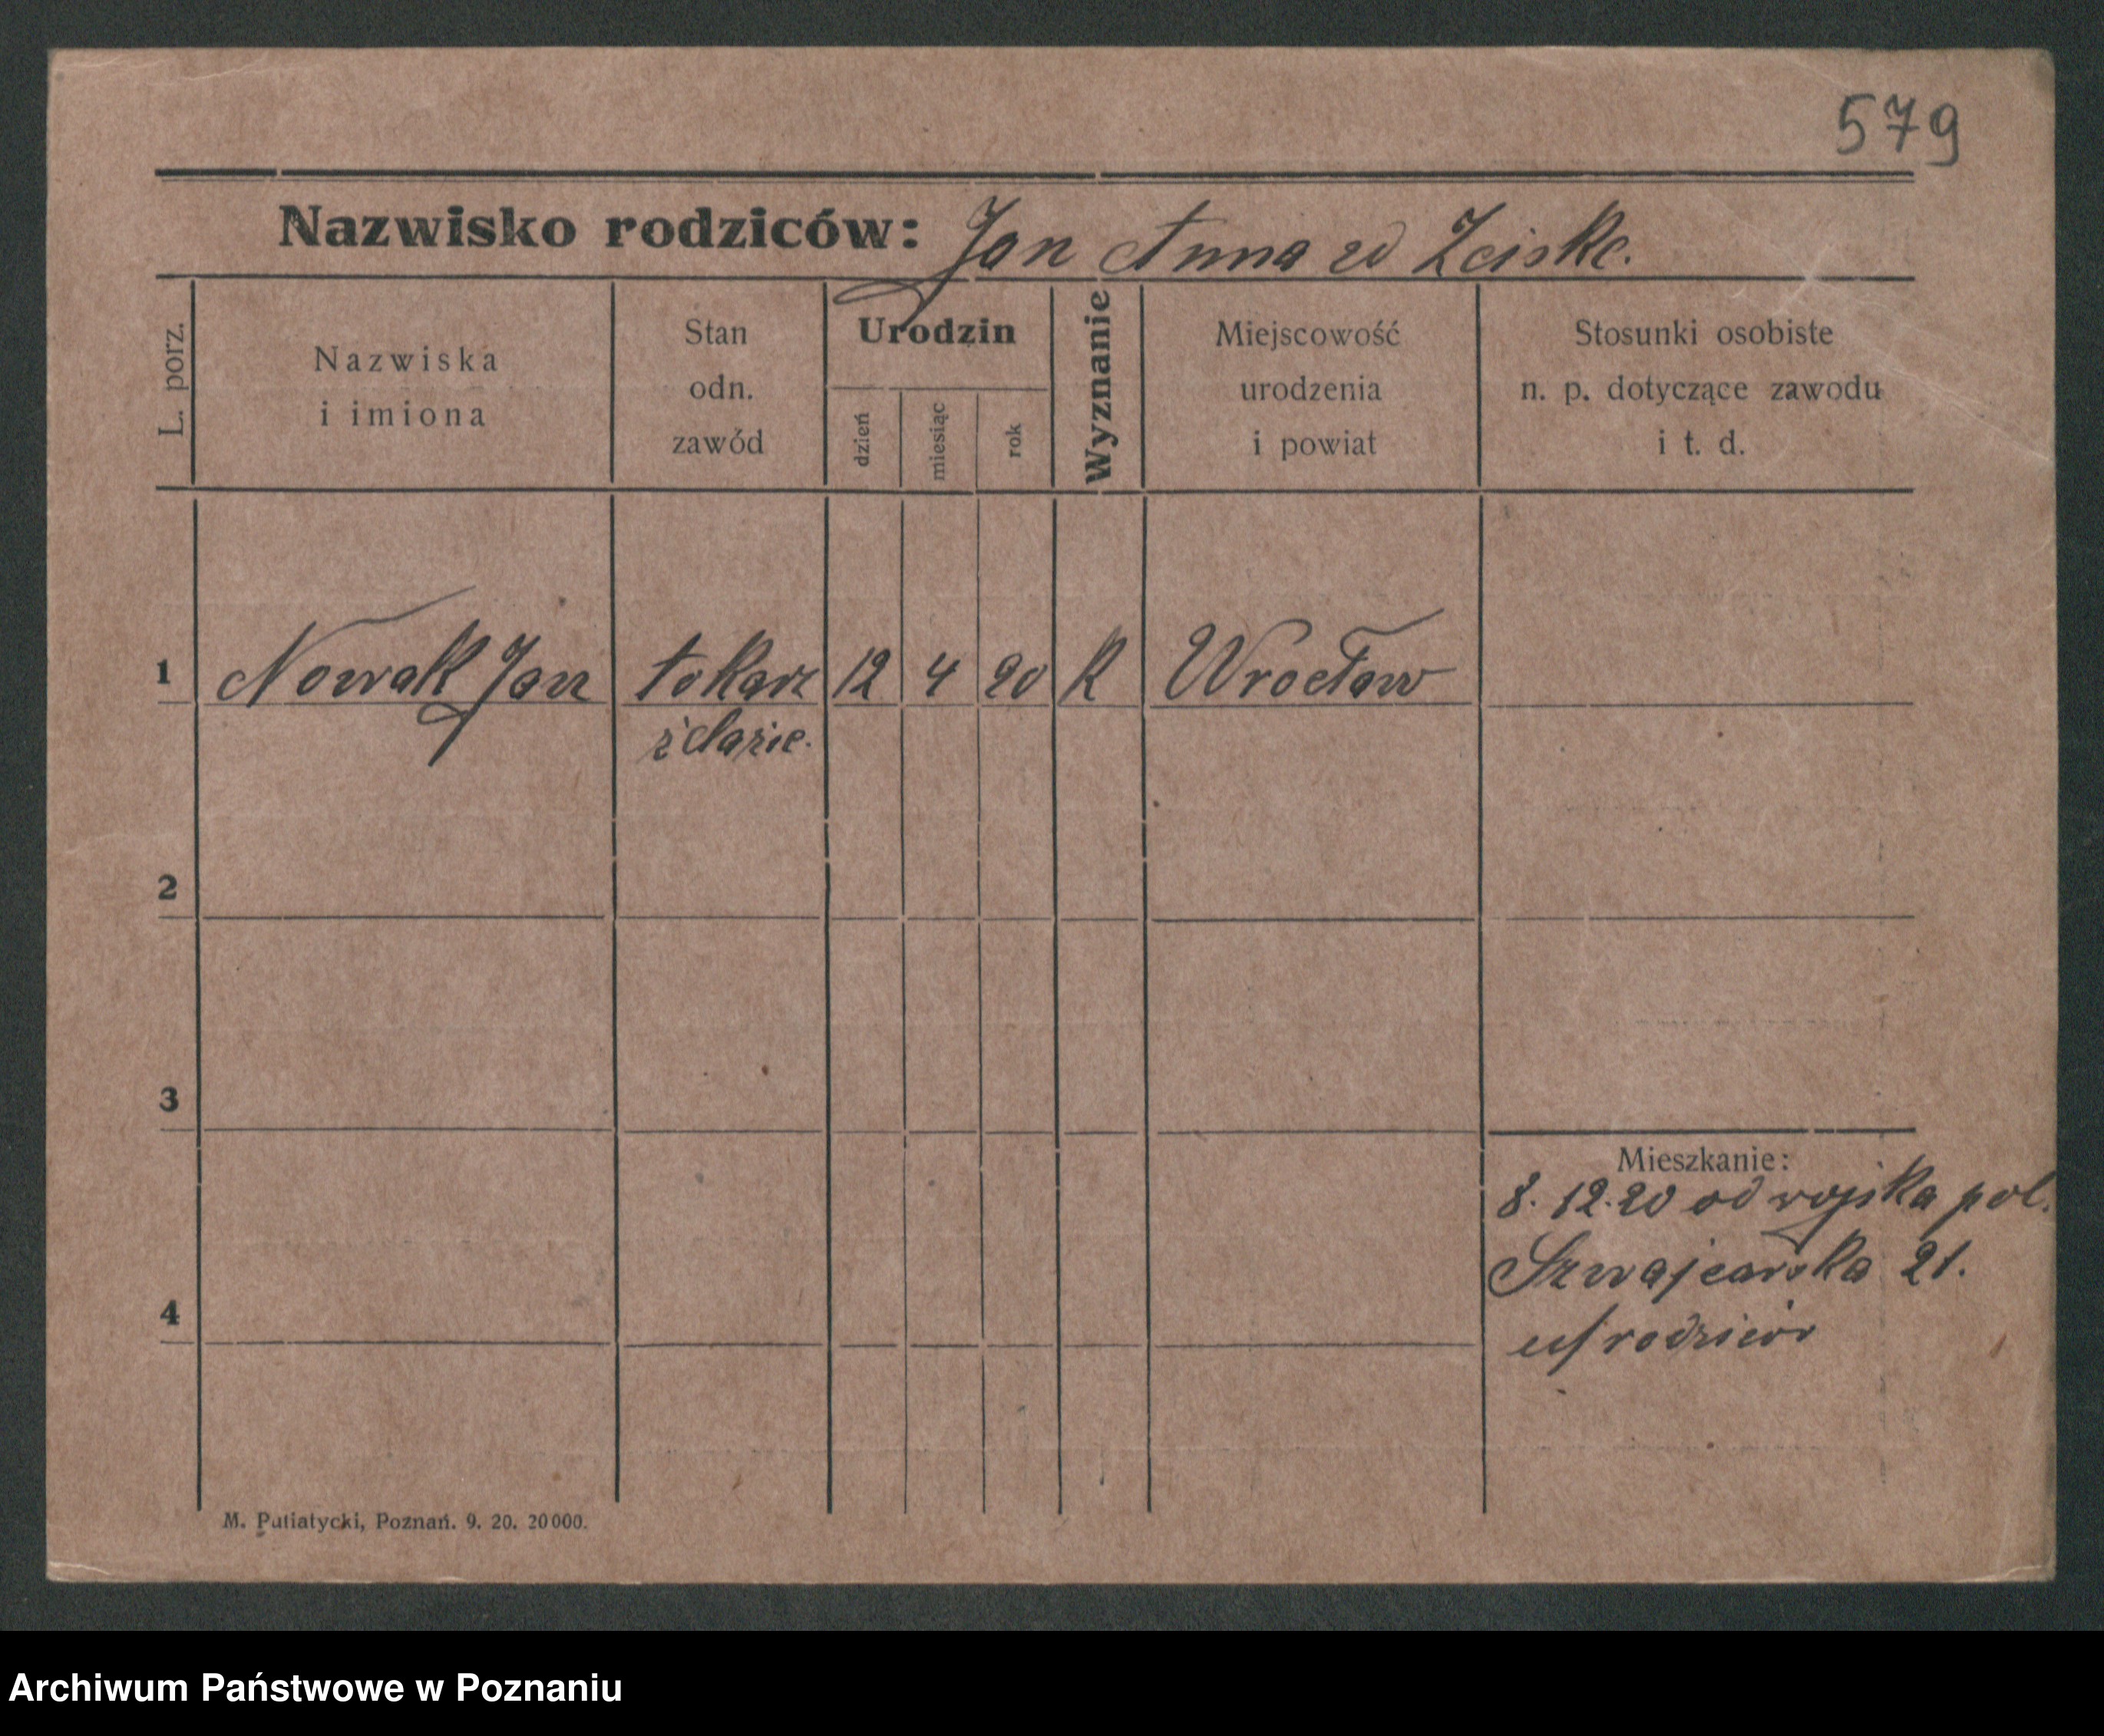 579
Nazwisko rodziców: Jan Anna zd Zciske.
L. porz.
Nazwiska
i imiona
Stan
odn.
zawód
Urodzin
dzień
miesiąc
rok
Wyznanie
Miejscowość
urodzenia
i powiat
Stosunki osobiste
n. p. dotyczące zawodu
i t. d.
1 Nowak Jan tokarz 12 4 20 K Wrocław
2
3
4
Mieszkanie:
8.12.20 od wojska pol.
Szwajcarska 21.
u/ rodziców
M. Putiatycki, Poznań. 9. 20. 20000.
Archiwum Państwowe w Poznaniu